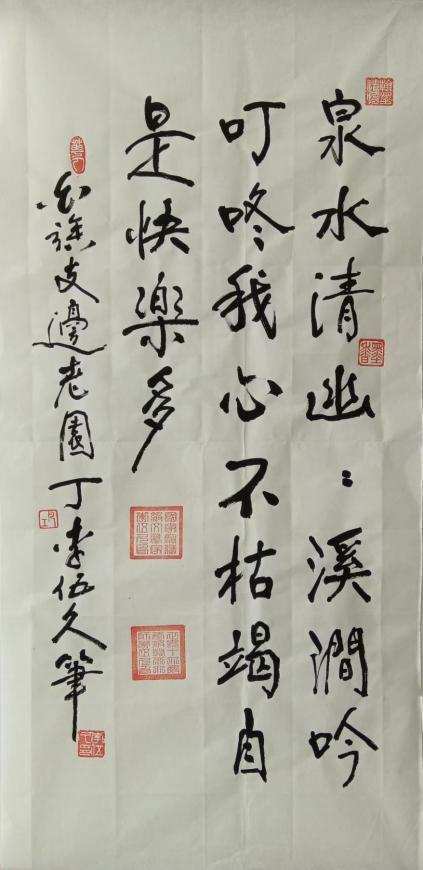 泉水清幽:溪澗吟
叮咚我心不枯竭自
是快樂多
白族支邊老園丁李伍久筆